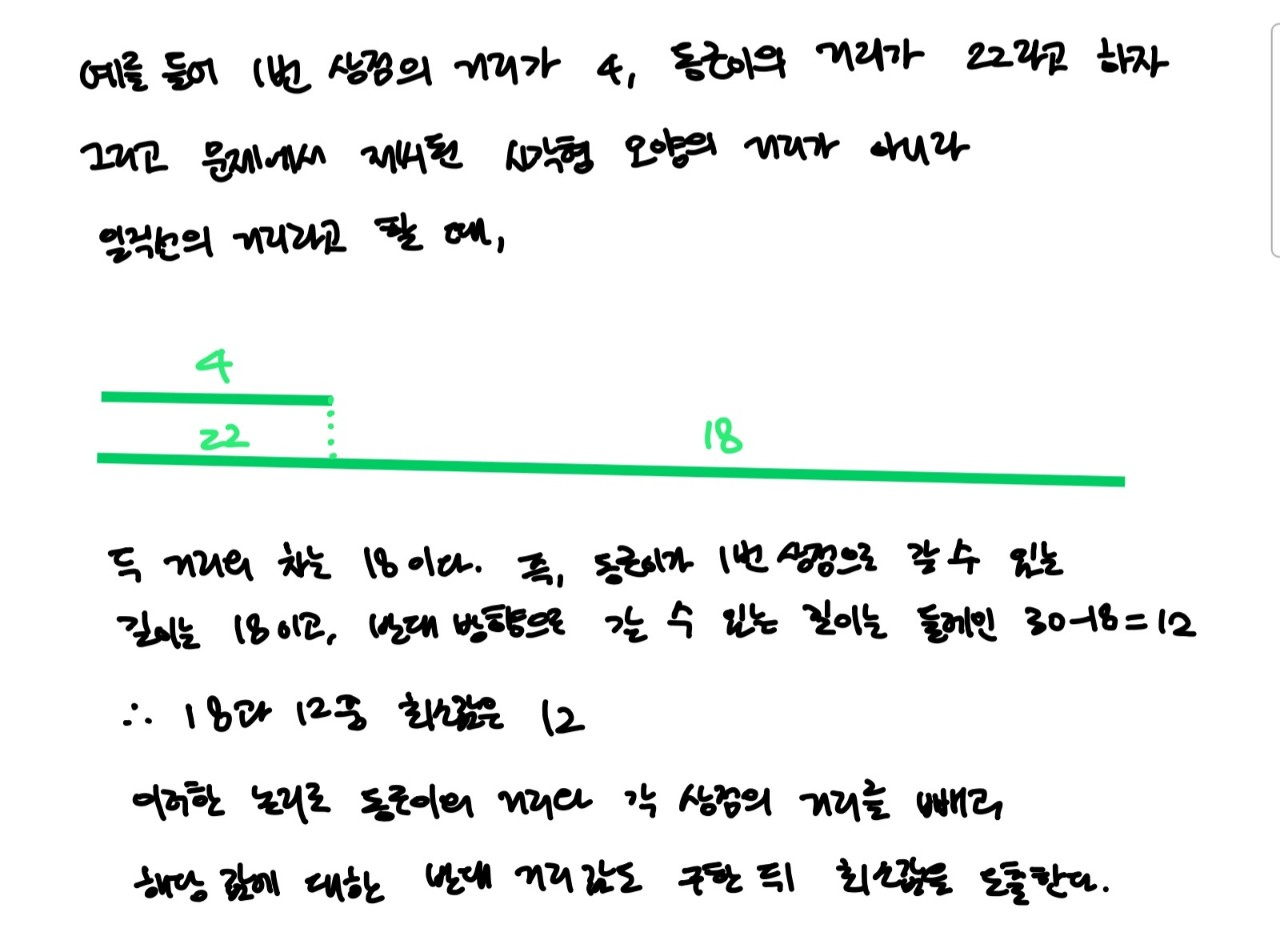 예를 들어 1번 상점의 거리가 4, 동근이의 거리가 22라고 하자
그리고 문제에서 제시된 사각형 모양의 거리가 아니라
일직선의 거리라고 할 때,
4
22
18
두 거리의 차는 18이다. 즉, 동근이가 1번 상점으로 갈 수 있는
길이는 18이고, 반대 방향으로 갈 수 있는 길이는 둘레인 30-18=12
∴ 18과 12중 최소값은 12
이러한 논리로 동근이의 거리와 각 상점의 거리를 빼고
해당 값에 대한 반대 거리 값도 구한 뒤 최소값을 도출한다.